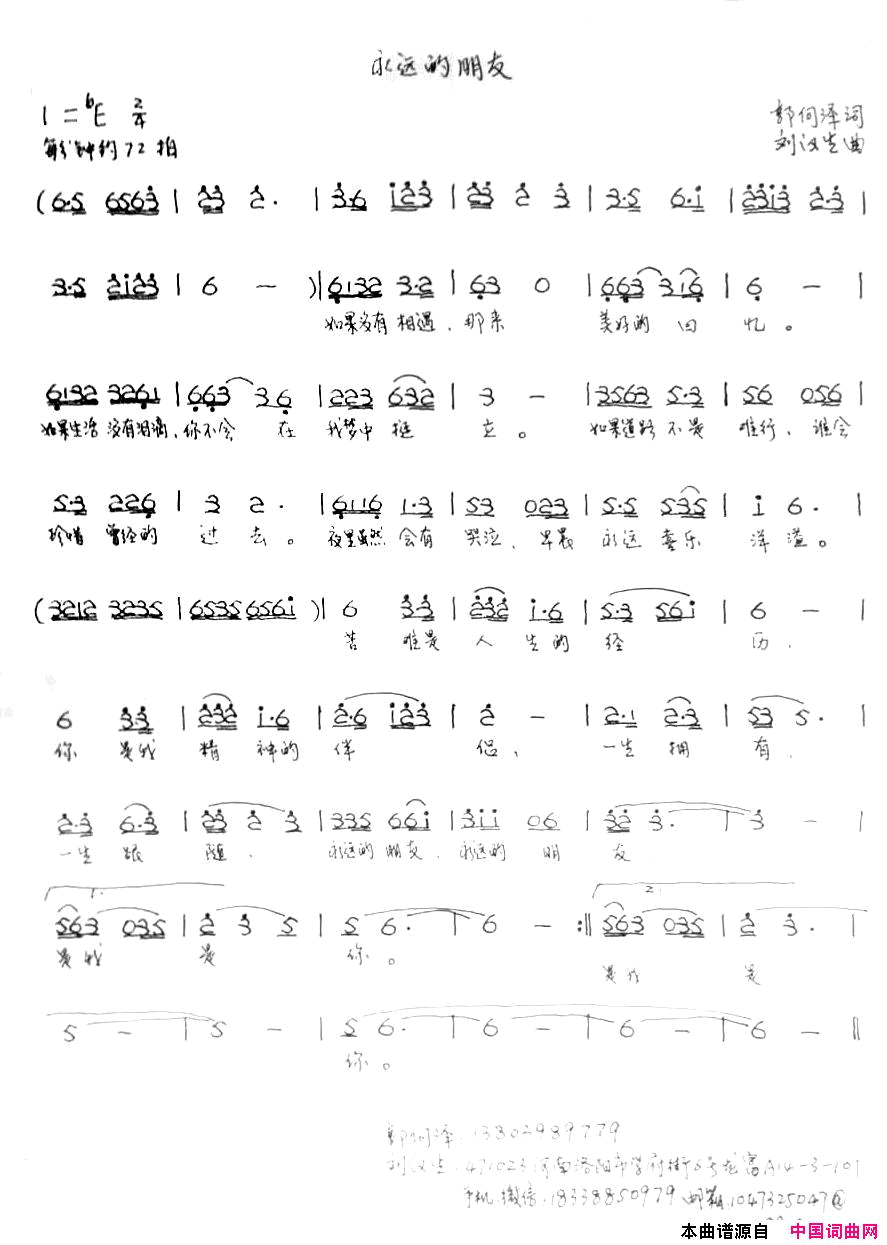 永远的朋友
1=♭E 2/4
郭何泽词
每分钟约72拍
刘汉生曲
(6·5 6563 | 23 2· | 3·6 123 | 23 2 3 | 3·5 6·1 | 2313 2·3 |
3·5 2123 | 6 — )| 6132 3·2 | 63 0 | 663 316 | 6 — |
如果没有相遇，那来 美好的回忆。
6132 3261 | 663 36 | 223 632 | 3 — | 3563 5·3 | 56 056 |
如果生活没有泪滴，你不会在我梦中挺立。如果道路不是唯行，谁会
5·3 226 | 3 2· | 6116 1·3 | 53 023 | 5·5 535 | 1 6· |
珍惜曾经的过去。夜里虽然会有哭泣，早晨永远喜乐洋溢。
(3212 3235 | 6535 6561 )| 6 3·3 | 232 1·6 | 5·3 561 | 6 — |
苦难是人生的经历，
6 3·3 | 232 1·6 | 2·6 123 | 2 — | 2·1 2·3 | 53 5· |
你是我精神的伴侣，一生拥有，
2·3 6·3 | 23 2 3 | 335 661 | 311 06 | 32 3· | 3 — |
一生跟随，永远的朋友，永远的朋友
1. 2.
563 035 | 2 3 5 | 5 6· | 6 — :‖ 563 035 | 2 3· |
是我是你。是我是
5 — | 5 — | 5 6· | 6 — | 6 — | 6 — ‖
你。
郭何泽：13302989779
刘汉生：471023河南洛阳市学府街6号龙富A14-3-101
手机.微信：18338850979 邮箱：1047325047@
本曲谱源自 中国词曲网